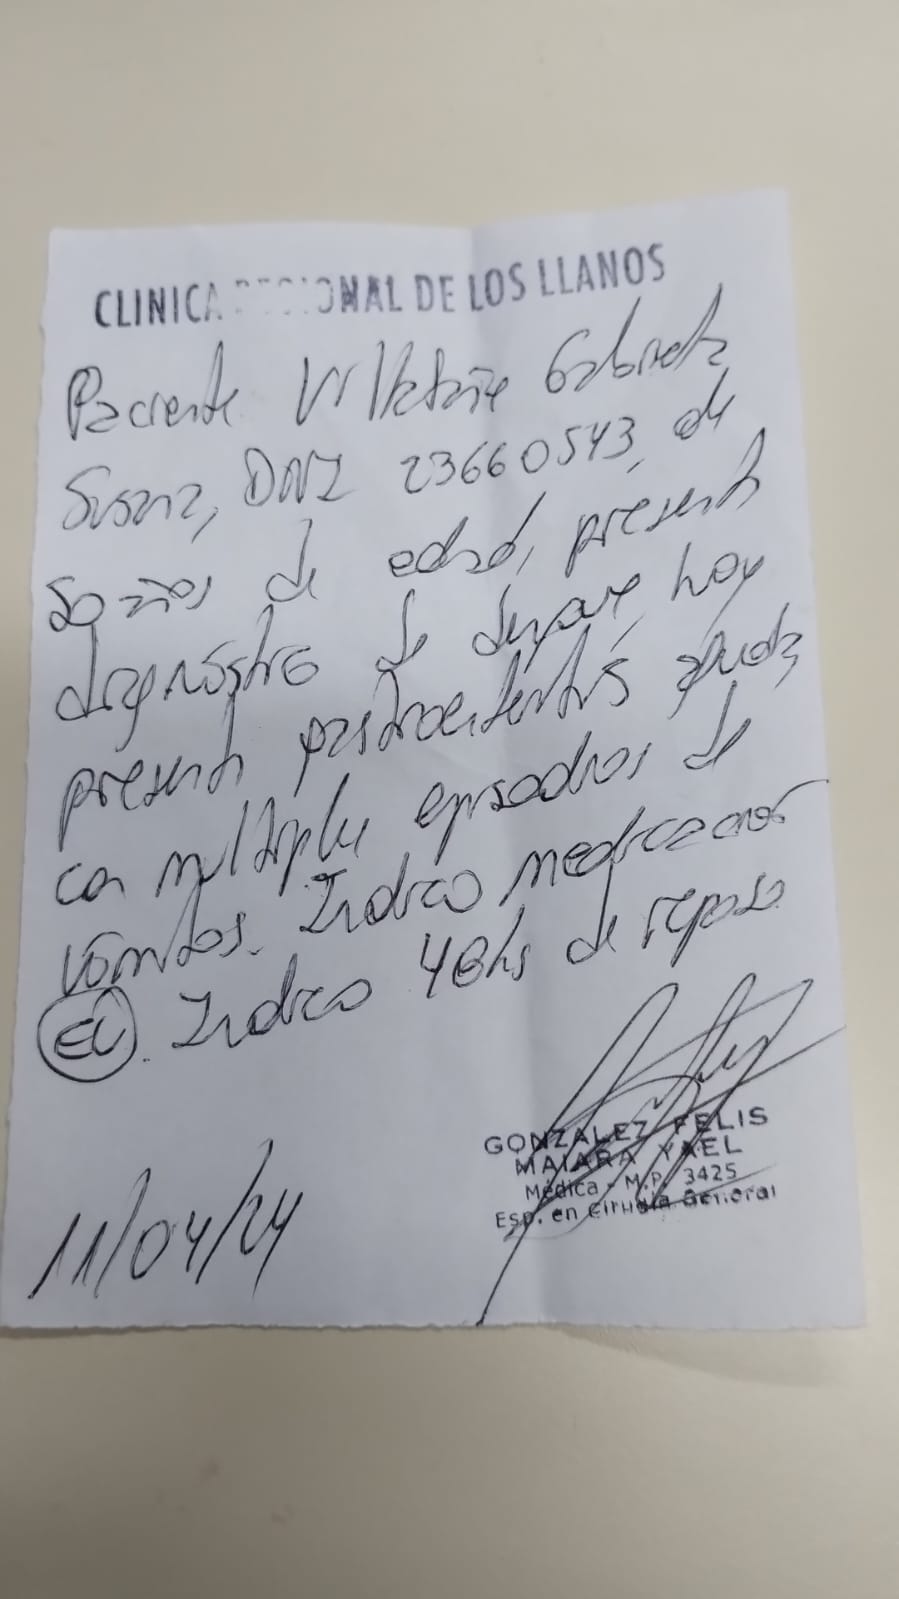 CLINICA REGIONAL DE LOS LLANOS
Paciente Gabriela
Susana, DNI 23660543, de
50 años de edad, presenta
diagnóstico de dengue, hoy
presenta gastroenteritis aguda,
con multiples episodios de
vómitos. Indico medicacion
Indico 48hs de reposo
GONZALEZ FELIS
MAIARA YAEL
Médica - M.P. 3425
Esp. en Cirugía General
11/04/24